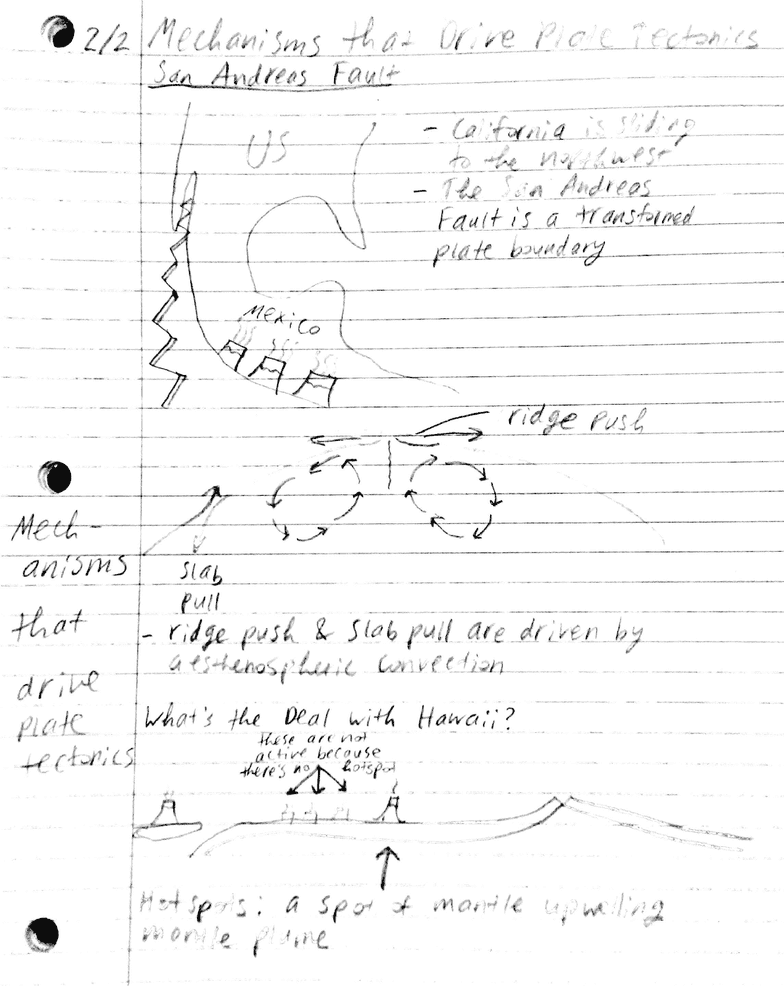 2/2 Mechanisms that Drive Plate Tectonics
San Andreas Fault
US
- California is sliding
to the northwest
- The San Andreas
Fault is a transformed
plate boundary
Mexico
ridge push
slab
pull
Mech-
anisms
that
drive
plate
tectonics
- ridge push & slab pull are driven by
aesthenospheric convection
What's the Deal with Hawaii?
these are not
active because
there's no hotspot
Hotspots: a spot of mantle upwelling
mantle plume